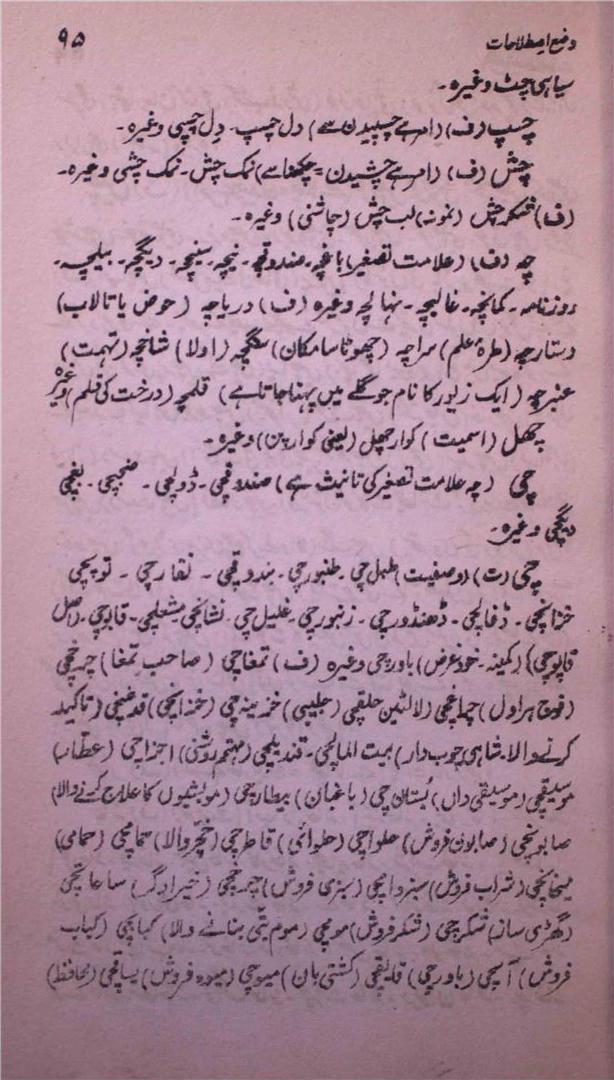 وضع اصطلاحات ۹۵
سیاہی چٹ وغیرہ۔
چسپ (ف) (امر ہے چسپیدن سے) دل چسپ۔ دل چسپی وغیرہ۔
چش (ف) (امر ہے چشیدن = چکھنا سے) نمک چش۔ نمک چشی وغیرہ۔
(ف) شکر چش (نمونہ) لب چش (چاشنی) وغیرہ۔
چہ (ف) (علامت تصغیر) باغچہ۔ صندوقچہ۔ نیچہ۔ سینچہ۔ دیگچہ۔ بیلچہ۔
روزنامہ۔ کمانچہ۔ غالیچہ۔ نہالچہ وغیرہ (ف) دریاچہ (حوض یا تالاب)
دستارچہ (طرۂ علم) سراچہ (چھوٹا سا مکان) سنگچہ (اولا) شانچہ (تہمت)
عنبرچہ (ایک زیور کا نام جو گلے میں پہنا جاتا ہے) قلمچہ (درخت کی قلم) وغیرہ
چھل (اسمیت) کوارچھل (یعنی کوارپن) وغیرہ۔
چی (چہ علامت تصغیر کی تانیث ہے) صندوقچی۔ ڈولچی۔ صنچی۔ بغچی
دیگچی وغیرہ۔
چی (ت) (وصفیت) طبل چی۔ طنبورچی۔ بندوقچی۔ نقارچی۔ توپچی
خزانچی۔ ڈفالچی۔ ڈھنڈورچی۔ زنبورچی۔ غلیل چی۔ نشانچی مشعلچی۔ قابوچی۔ (اصل
قاپوچی) (کمینہ۔ خودغرض) باورچی وغیرہ (ف) تمغاچی (صاحب تمغا) چرخچی
(فوج ہراول) چراغچی (لالٹین حلقچی (جلیبی) خزینہ چی (خزانچی) قدغنچی (تاکید
کرنے والا۔ شاہی چوب دار) بیت المالچی۔ قندیلچی (مہتمم روشنی) اجزاچی (عطار)
موسیقچی (موسیقی داں) بُستان چی (باغبان) بیطارچی (مویشیوں کا علاج کرنے والا)
صابونچی (صابون فروش) حلواچی (حلوائی) قاطرچی (خچر والا) حمامچی (حمامی)
میخانچی (شراب فروش) سبزواچی (سبزی فروش) چرخچی (خیرادگر) ساعاتچی
(گھڑی ساز) شکرچی (شکر فروش) مومچی (موم بتی بنانے والا) کبابچی (کباب
فروش) آشچی (باورچی) قایقچی (کشتی بان) میوچی (میوہ فروش) یساقچی (محافظ)